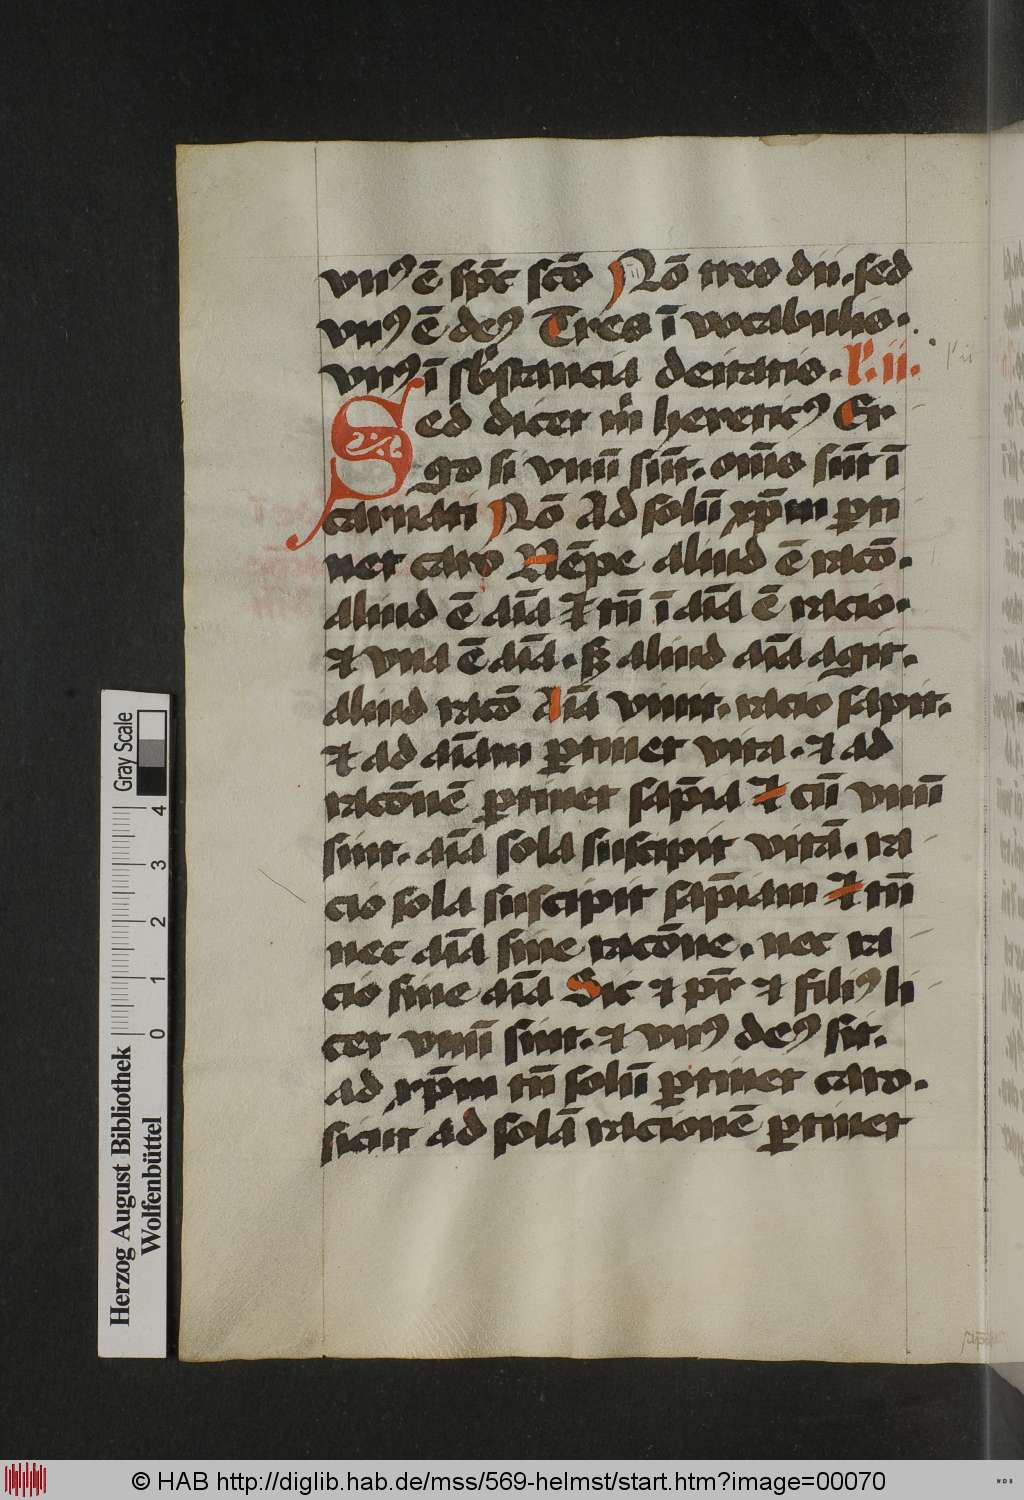 vnꝰ ē spc̄ scs̄ Nō tres dii · sed
vnꝰ ē deꝰ Tres ī vocabulis ·
vnꝰ ī sb̄stancia deitatis · L' · ii ·
Sed dicet m̄ hereticꝰ Er
go si vnū sūt · om̄s sūt ī
carnati Nō Ad solū xp̄m ꝑti
net caro Nēpe aliud ē racō ·
aliud ē aīa et tn̄ ī aīa ē racio ·
et vna ē aīa · sꝫ aliud aīa agit ·
aliud racō Aīa viuit · racio sapit ·
et ad aīam ꝑtinet vita · et ad
racōnē ꝑtinet sap̄ia Et cū vnū
sint · aīa sola suscipit vitā · ra
cio sola suscipit sap̄iam Et tn̄
nec aīa sine racōne · nec ra
cio sine aīa Sic et pr̄ et filiꝰ li
cet vnū sint · et vnꝰ deꝰ sit ·
ad xp̄m tn̄ solū ꝑtinet caro ·
sicut ad solā racionē ꝑtinet
Herzog August Bibliothek
Wolfenbüttel
Gray Scale
0 1 2 3 4
© HAB http://diglib.hab.de/mss/569-helmst/start.htm?image=00070